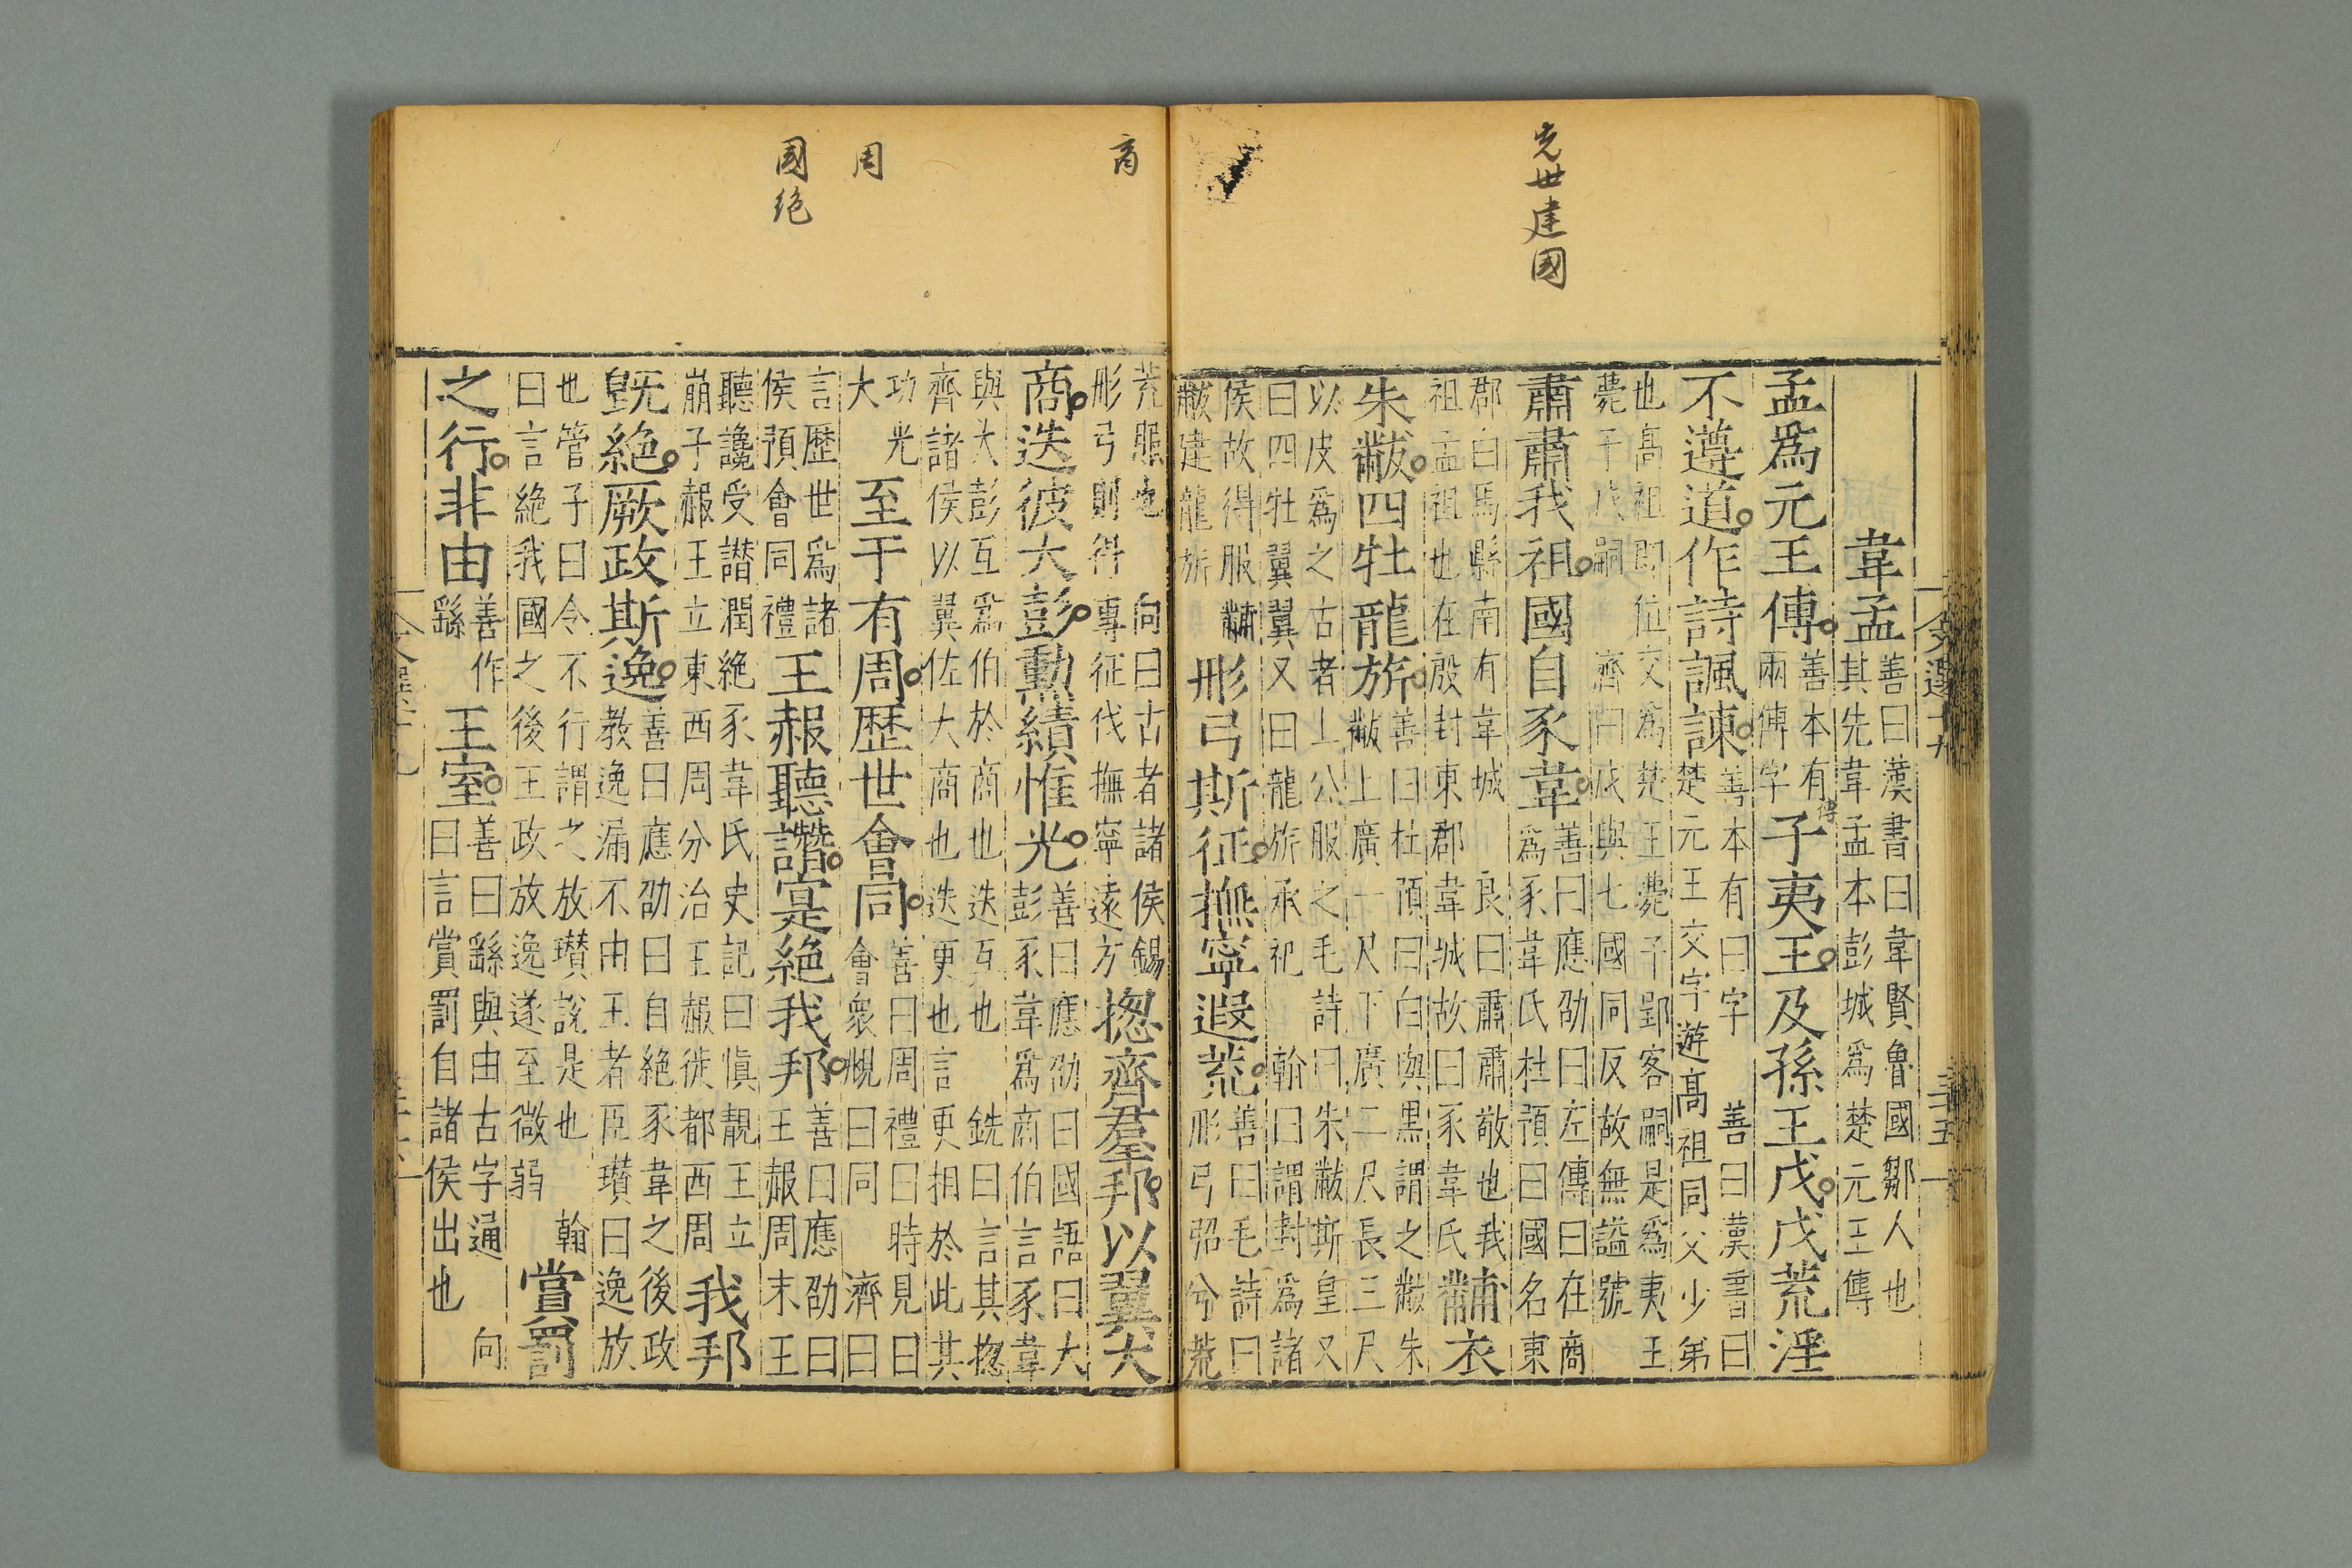 先世建國
文選十九
二五
韋孟
善曰漢書曰韋賢魯國鄒人也
其先韋孟本彭城爲楚元王傅
孟爲元王傅
善本有
兩傅字
傅
子夷王及孫王戊戊荒淫
不遵道作詩諷諫
善本有曰字 善曰漢書曰
楚元王交字遊高祖同父少弟
也高祖即位交爲楚王薨子郢客嗣是爲夷王
薨子戊嗣 濟曰戊與七國同反故無謚號
肅肅我祖國自豕韋
善曰應劭曰左傳曰在商
爲豕韋氏杜預曰國名東
郡白馬縣南有韋城 良曰肅肅敬也我
祖孟祖也在殷封東郡韋城故曰豕韋氏
黼衣
朱黻四牡龍旂
善曰杜預曰白與黑謂之黻朱
黻上廣一尺下廣二尺長三尺
以皮爲之古者上公服之毛詩曰朱黻斯皇又
曰四牡翼翼又曰龍旂承祀 翰曰謂封爲諸
侯故得服黼
黻建龍旂
彤弓斯征撫寧遐荒
善曰毛詩曰
彤弓弨兮荒
商
周
國絶
荒服也 向曰古者諸侯錫
彤弓則得專征伐撫寧遠方
揔齊羣邦以翼大
商迭彼大彭勲績惟光
善曰應劭曰國語曰大
彭豕韋爲商伯言豕韋
與大彭互爲伯於商也迭互也 銑曰言其揔
齊諸侯以翼佐大商也迭更也言更相於此其
功光
大
至于有周歴世會同
善曰周禮曰時見曰
會衆頫曰同 濟曰
言歴世爲諸
侯預會同禮
王赧聽譖寔絶我邦
善曰應劭曰
王赧周末王
聽讒受譖潤絶豕韋氏史記曰慎靚王立
崩子赧王立東西周分治王赧徙都西周
我邦
旣絶厥政斯逸
善曰應劭曰自絶豕韋之後政
教逸漏不由王者臣瓚曰逸放
也管子曰令不行謂之放瓚說是也 翰
曰言絶我國之後王政放逸遂至微弱
賞罰
之行非由
善作
繇
王室
善曰繇與由古字通 向
曰言賞罰自諸侯出也